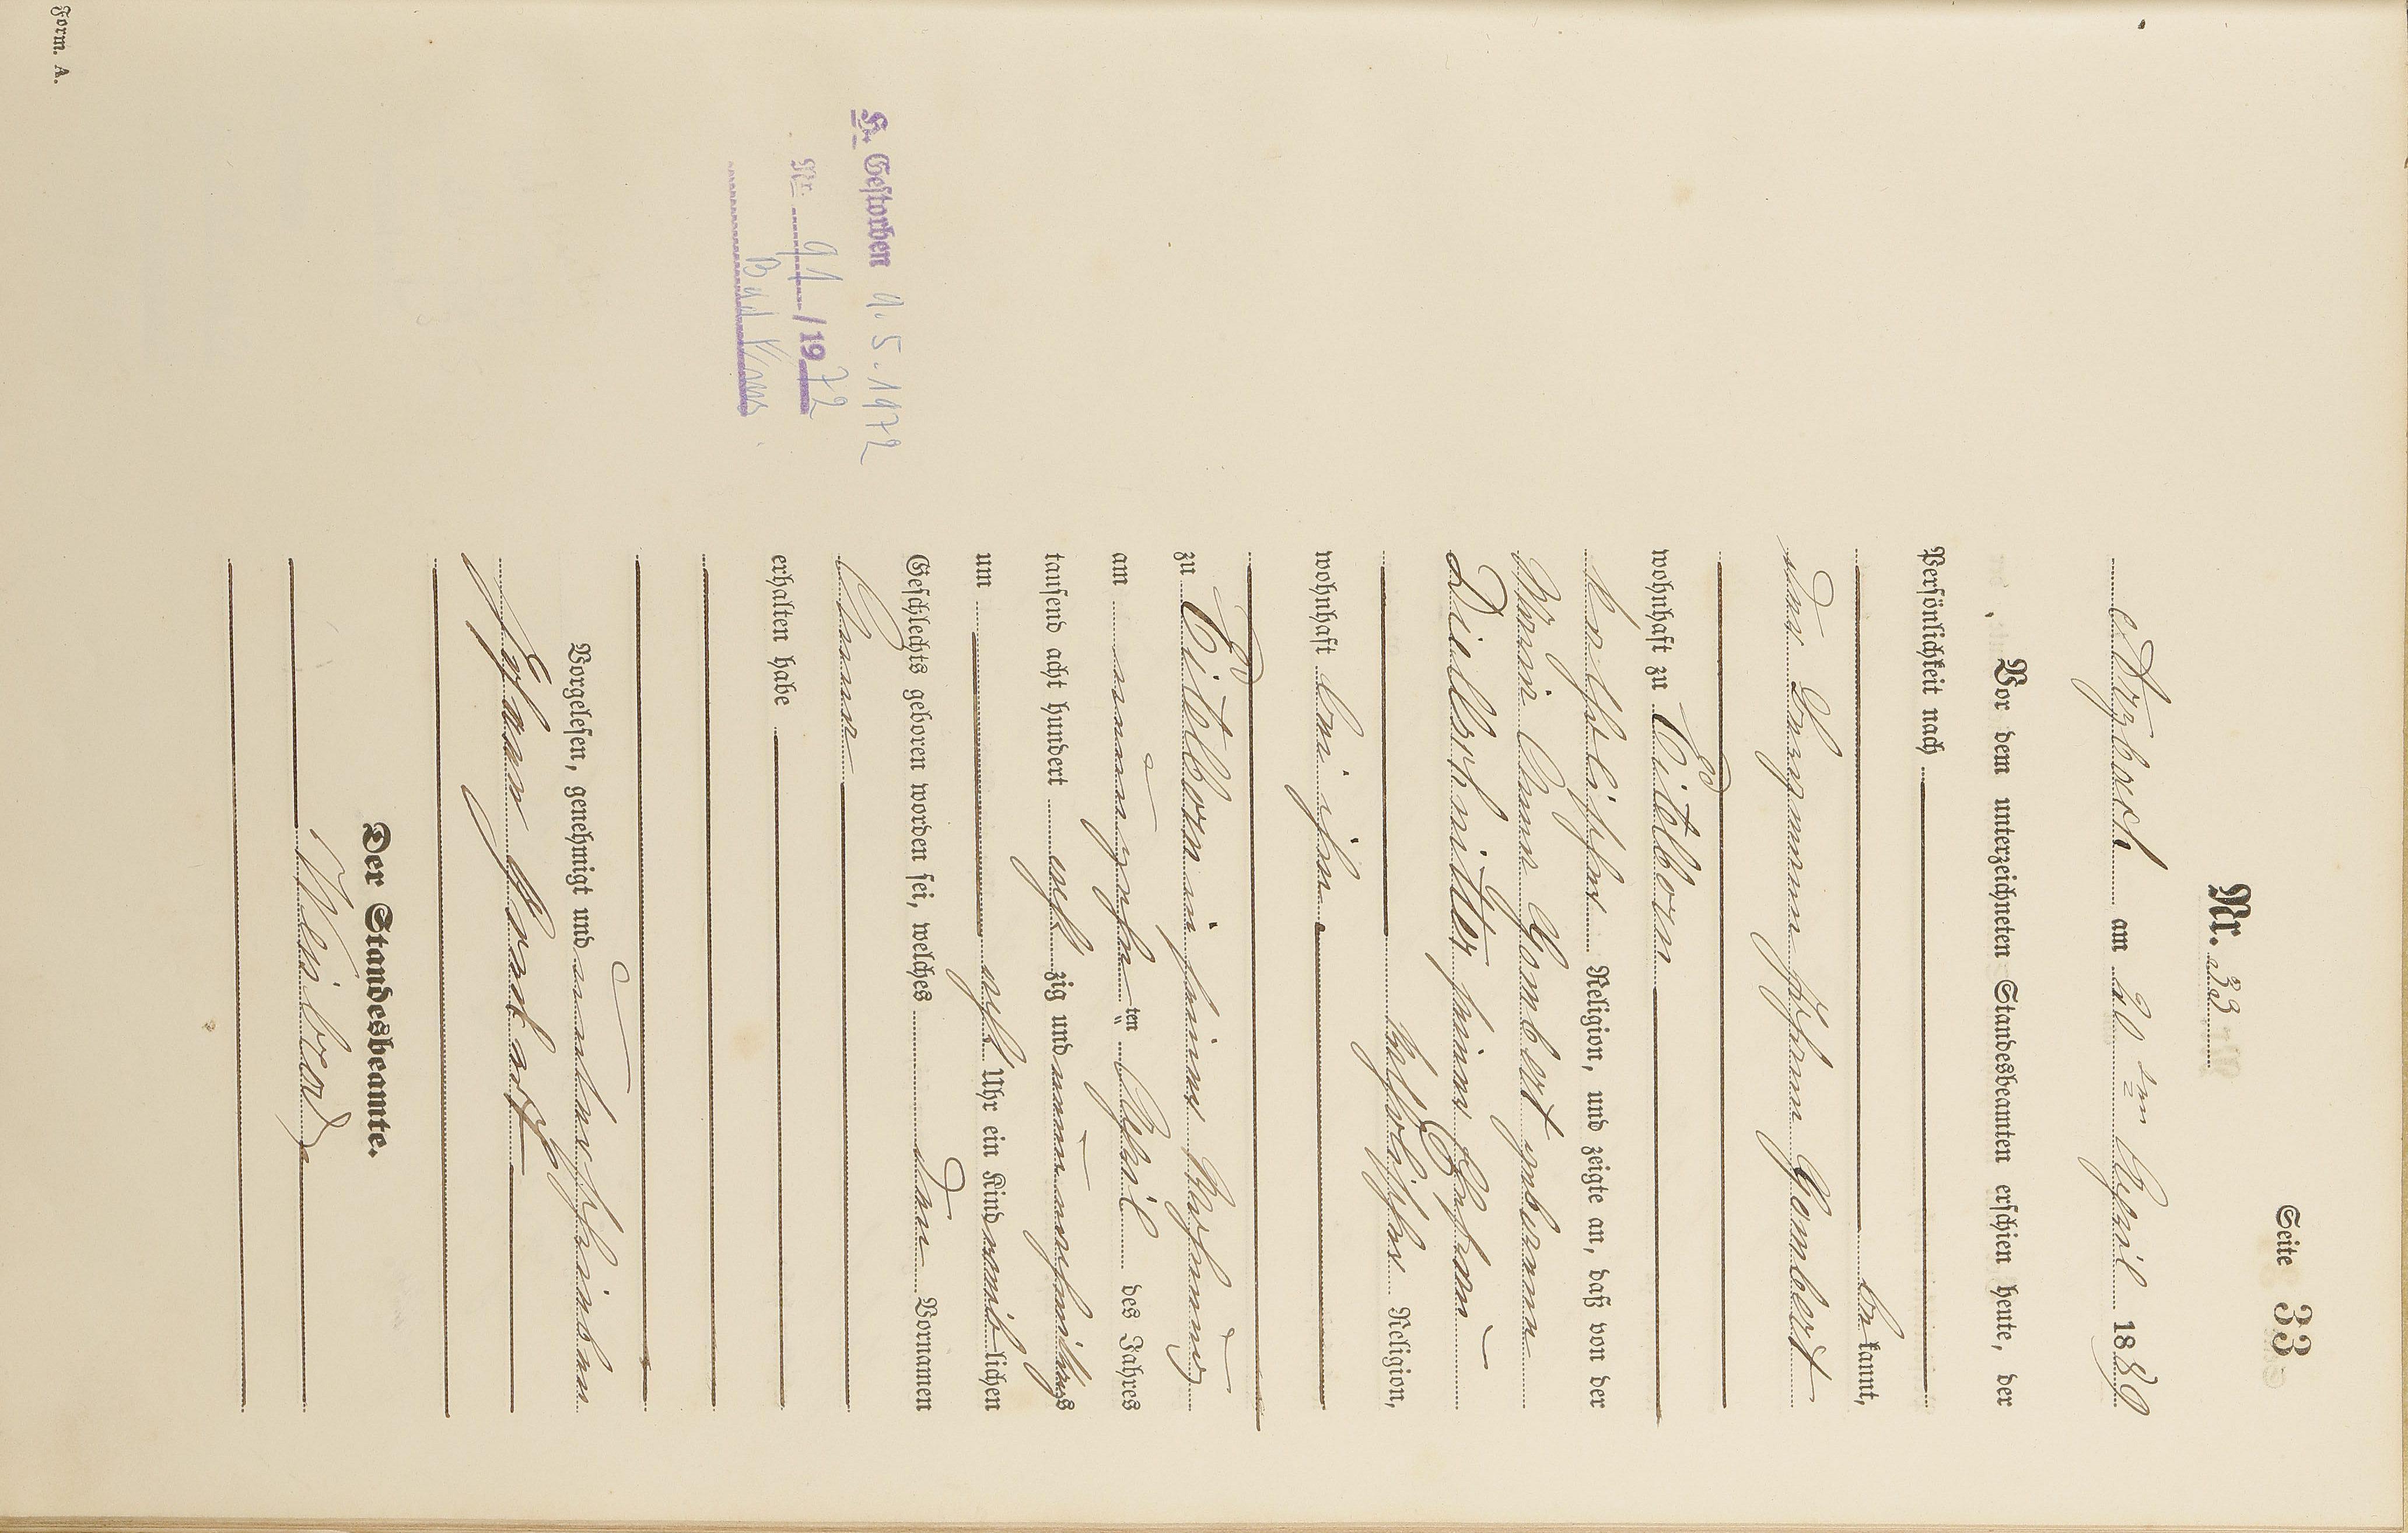 Seite 33
Nr. 33
Arzbach am 20ten April 1889
Vor dem unterzeichneten Standesbeamten erschien heute, der
Persönlichkeit nach
bekannt,
der Bergmann Johann Gombert
wohnhaft zu Eitelborn
katholischer Religion, und zeigte an, daß von der
Anna Gombert geborenen
Dillschnitter seiner Ehefrau
katholischer Religion,
wohnhaft bei ihm
zu Eitelborn in seiner Wohnung
am neunzehnten April des Jahres
tausend acht hundert achtzig und neun nachmittags
um acht Uhr ein Kind weiblichen
Geschlechts geboren worden sei, welches den Vornamen
Anna
erhalten habe
Vorgelesen, genehmigt und unterschrieben
Johann
Der Standesbeamte.
H. Gestorben 1.5.1972
Nr. 91/1972
Bad
Form. A.